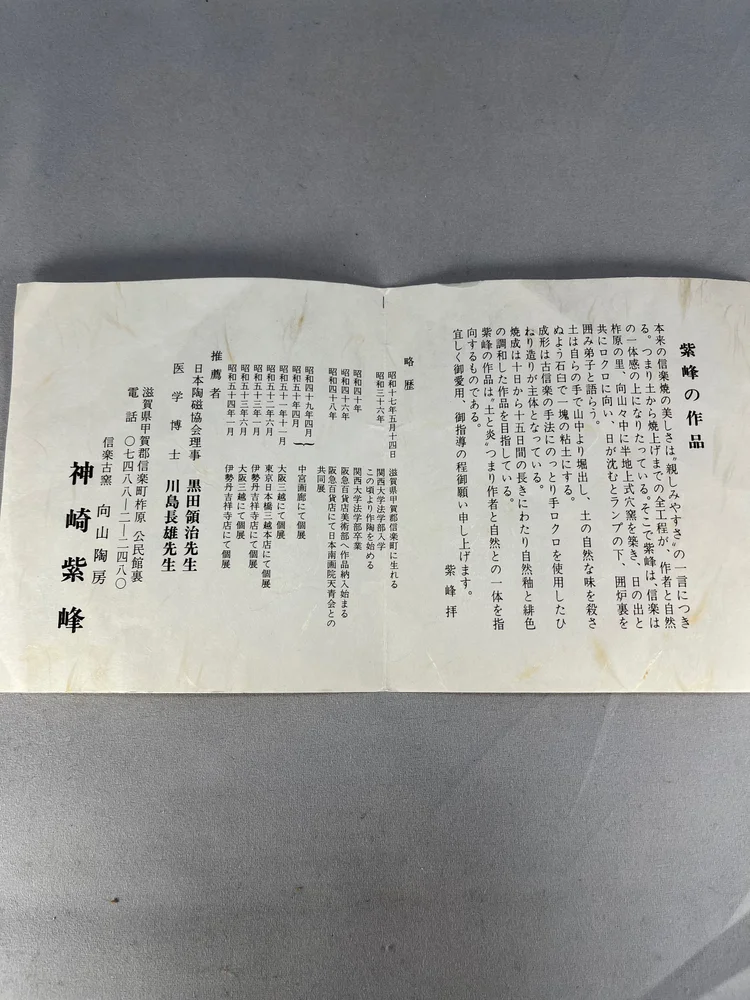 紫峰の作品
本来の信楽焼の美しさは〝親しみやすさ〟の一言につき
る。つまり土から焼上げまでの全工程が、作者と自然
の一体感の上になりたっている。そこで紫峰は、信楽は
柞原の里、向山々中に半地上式穴窯を築き、日の出と
共にロクロに向い、日が沈むとランプの下、囲炉裏を
囲み弟子と語らう。
土は自らの手で山中より堀出し、土の自然な味を殺さ
ぬよう石臼で一塊の粘土にする。
成形は古信楽の手法にのっとり手ロクロを使用したひ
ねり造りが主体となっている。
焼成は十日から十五日間の長きにわたり自然釉と緋色
の調和した作品を目指している。
紫峰の作品は〝土と炎〟つまり作者と自然との一体を指
向するものである。
宜しく御愛用、御指導の程御願い申し上げます。
紫峰拝
略歴
昭和十七年五月十四日 滋賀県甲賀郡信楽町に生れる
昭和三十六年 関西大学法学部入学
この頃より作陶を始める
昭和四十年 関西大学法学部卒業
昭和四十六年 阪急百貨店美術部へ作品納入始まる
昭和四十八年 阪急百貨店にて日本南画院天青会との
共同展
昭和四十九年四月
昭和五十年四月 中宮画廊にて個展
昭和五十一年十一月 大阪三越にて個展
昭和五十二年六月 東京日本橋三越本店にて個展
昭和五十三年一月 伊勢丹吉祥寺店にて個展
昭和五十三年六月 大阪三越にて個展
昭和五十四年一月 伊勢丹吉祥寺店にて個展
推薦者
日本陶磁協会理事 黒田領治先生
医学博士 川島長雄先生
滋賀県甲賀郡信楽町柞原 公民館裏
電話 〇七四八八―二―二四八〇
信楽古窯 向山陶房
神崎紫峰